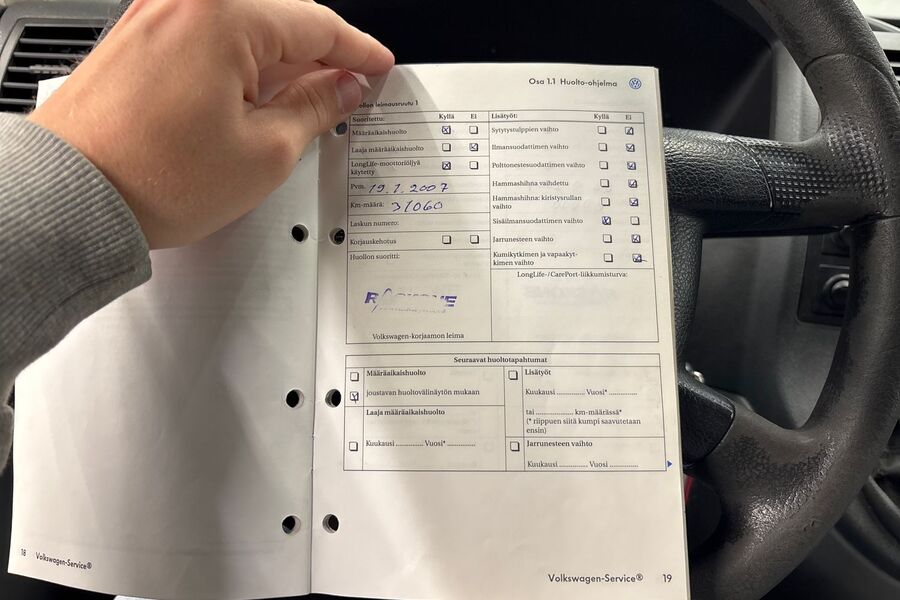 Osa 1.1 Huolto-ohjelma
leimausruutu 1
Suoritettu: Kyllä Ei
Määräaikaishuolto
Laaja määräaikaishuolto
LongLife-moottoriöljyä
käytetty
Pvm. 19.1.2007
Km-määrä: 31060
Laskun numero:
Korjauskehotus
Huollon suoritti:
Volkswagen-korjaamon leima
Lisätyöt: Kyllä Ei
Sytytystulppien vaihto
Ilmansuodattimen vaihto
Polttonestesuodattimen vaihto
Hammashihna vaihdettu
Hammashihna: kiristysrullan
vaihto
Sisäilmansuodattimen vaihto
Jarrunesteen vaihto
Kumikytkimen ja vapaakyt-
kimen vaihto
LongLife-/CarePort-liikkumisturva:
Seuraavat huoltotapahtumat
Määräaikaishuolto
joustavan huoltovälinäytön mukaan
Laaja määräaikaishuolto
Kuukausi .............. Vuosi* ..............
Lisätyöt
Kuukausi .............. Vuosi* ..............
tai .................. km-määrässä*
(* riippuen siitä kumpi saavutetaan
ensin)
Jarrunesteen vaihto
Kuukausi .............. Vuosi ..............
18 Volkswagen-Service®
Volkswagen-Service® 19